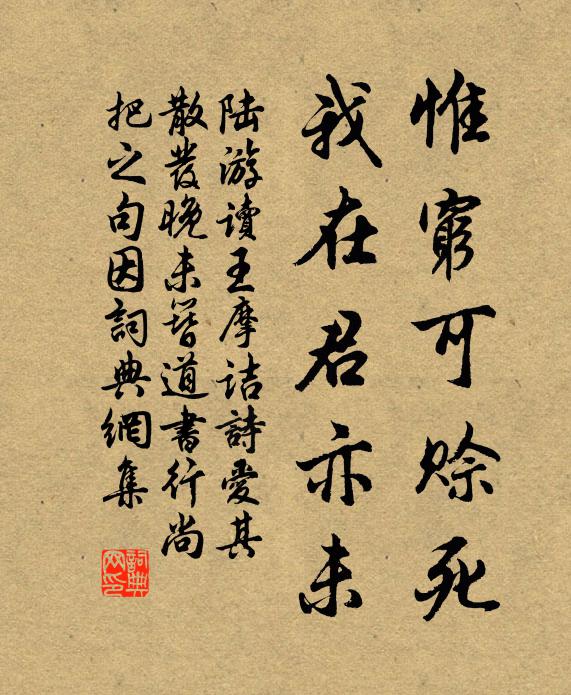 惟窮可賒死
我在君亦未
陆游讀王摩诘詩愛其
散發晚未簪道書行尚
把之句因詞典網集
詞典網印